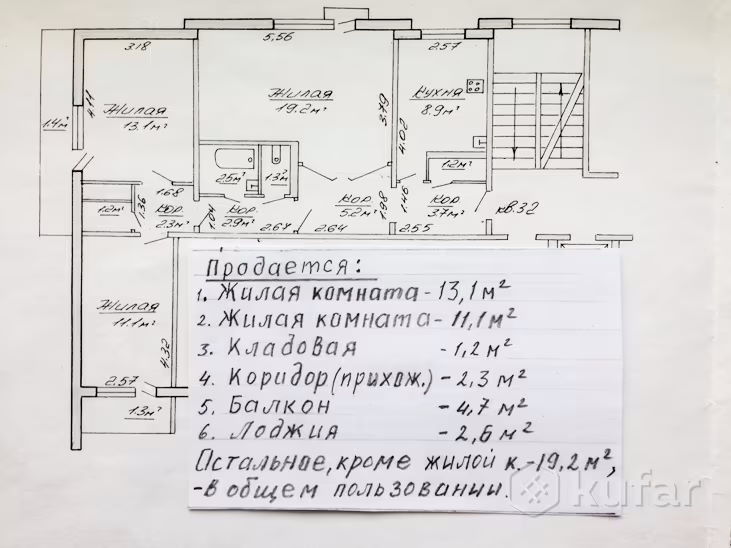 3.18
5,56
2.57
Жилая
13.1м²
4.11
1.4м²
Жилая
19.2м²
3.79
4.02
Кухня
8.9м²
2.5м²
1.3м²
1.2м²
1.68
1.36
1.2м²
Кор.
2.3м²
1.04
Кор.
2.9м²
2.67
Кор.
5.2м²
2.64
1.98
1.46
Кор
3.7м²
2.55
кв.32
Жилая
11.1м²
4.32
2.57
1.3м²
Продается:
1. Жилая комната - 13,1 м²
2. Жилая комната - 11,1 м²
3. Кладовая - 1,2 м²
4. Коридор (прихож.) - 2,3 м²
5. Балкон - 4,7 м²
6. Лоджия - 2,6 м²
Остальное, кроме жилой к. - 19,2 м²,
- в общем пользовании.
kufar